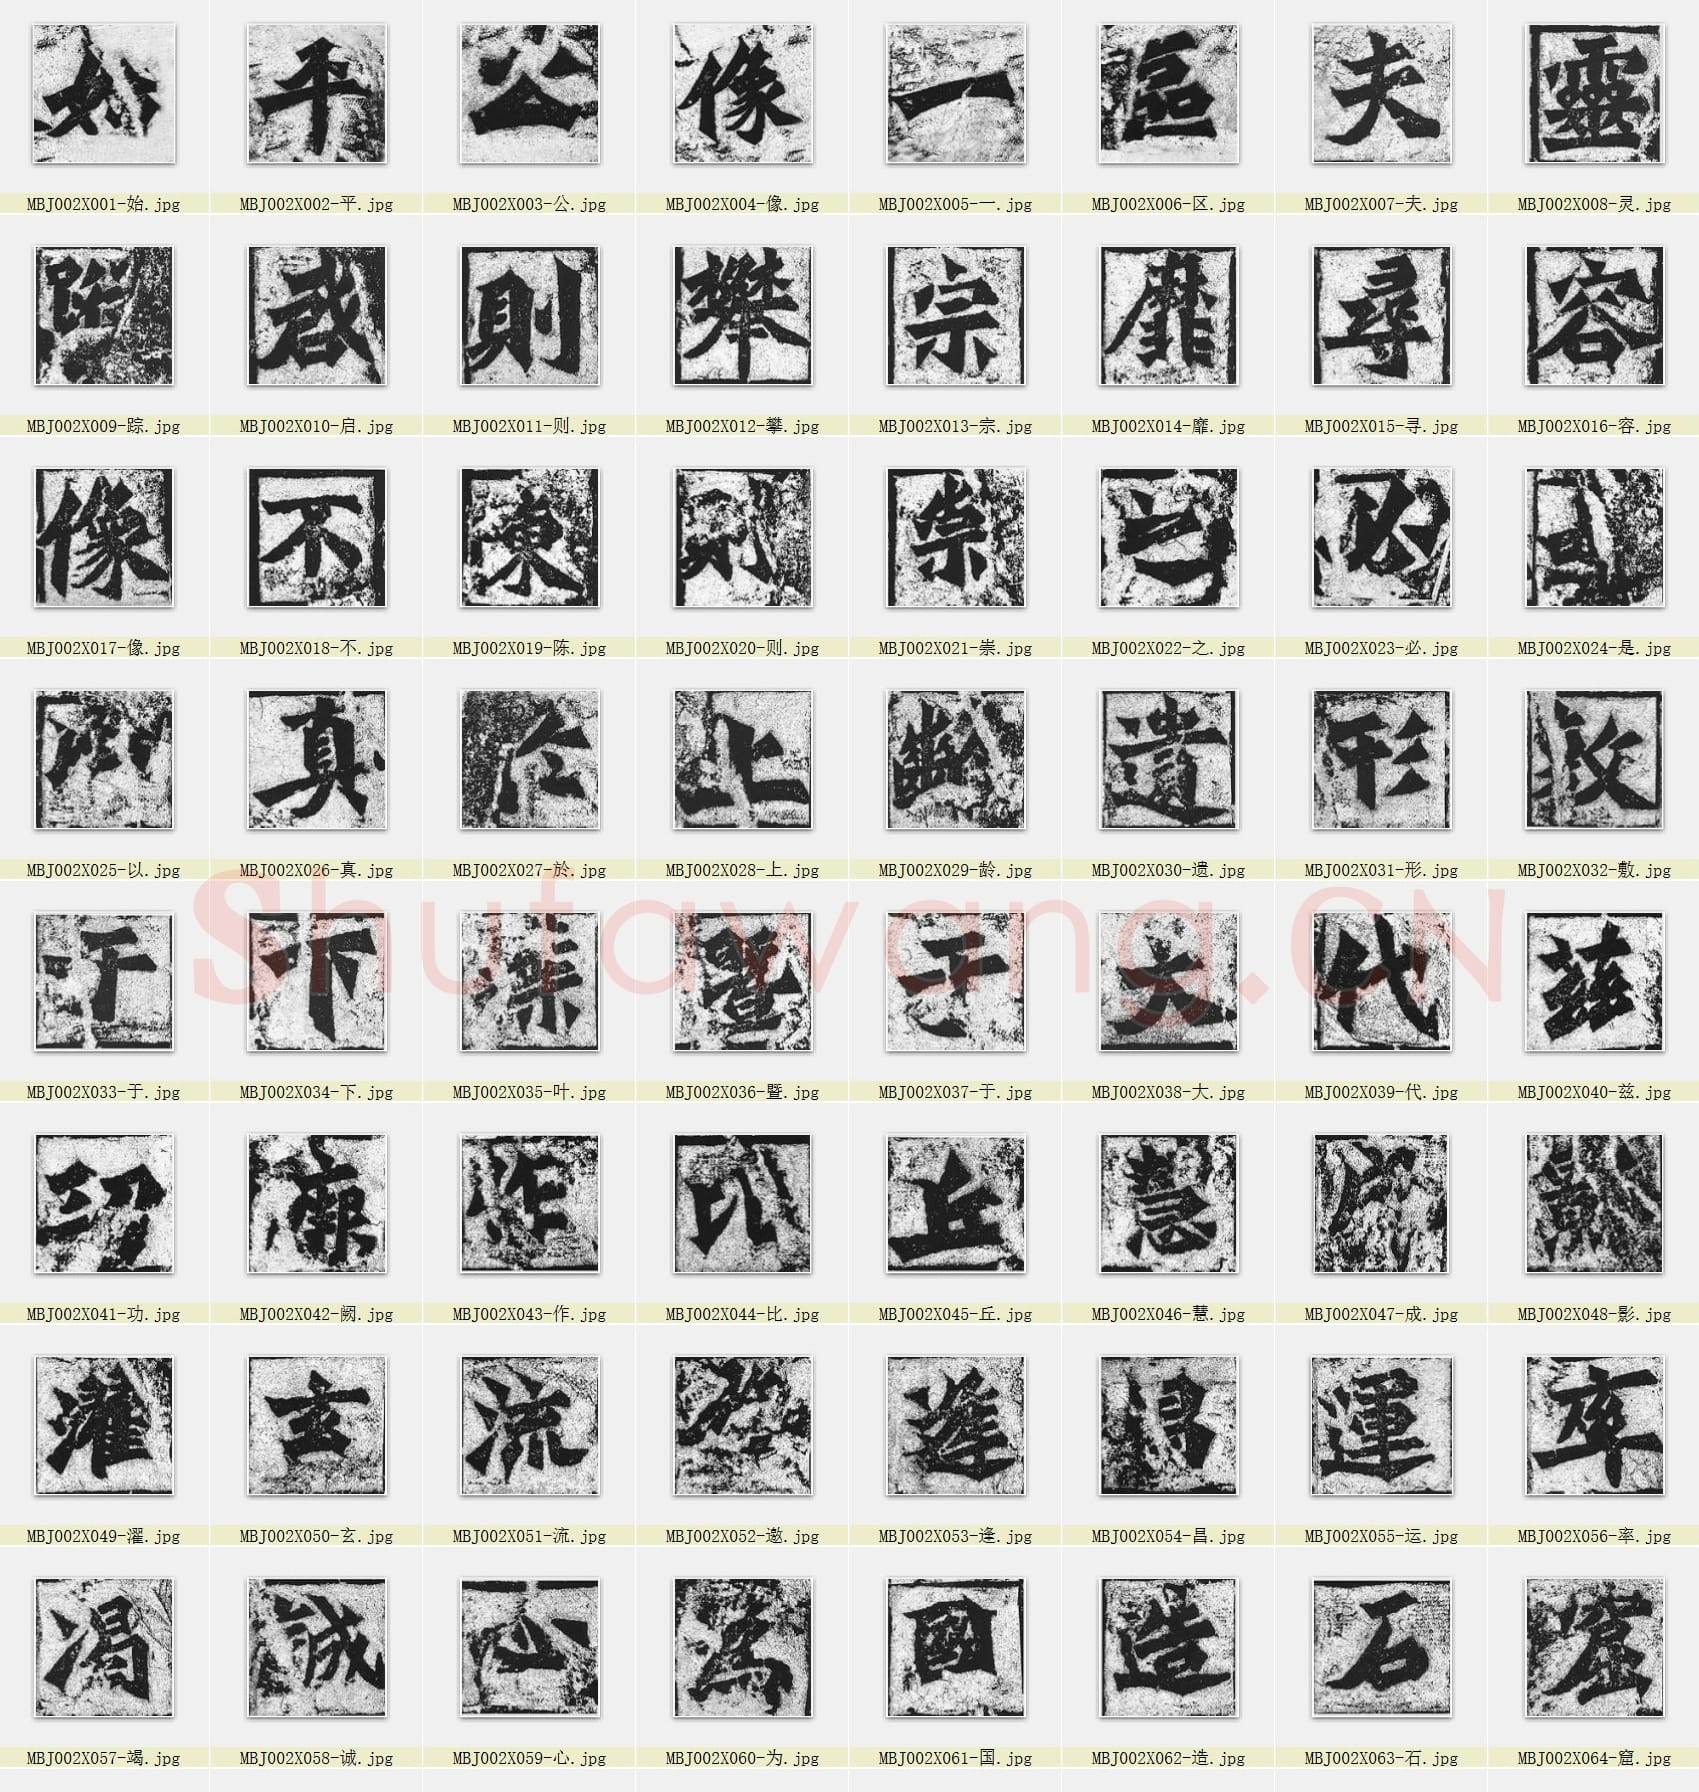 始 平 公 像 一 區 夫 靈
MBJ002X001-始.jpg MBJ002X002-平.jpg MBJ002X003-公.jpg MBJ002X004-像.jpg MBJ002X005-一.jpg MBJ002X006-区.jpg MBJ002X007-夫.jpg MBJ002X008-灵.jpg
啓 則 攀 宗 靡 尋 容
MBJ002X009-踪.jpg MBJ002X010-启.jpg MBJ002X011-则.jpg MBJ002X012-攀.jpg MBJ002X013-宗.jpg MBJ002X014-靡.jpg MBJ002X015-寻.jpg MBJ002X016-容.jpg
像 不 陳 則 崇 之 必
MBJ002X017-像.jpg MBJ002X018-不.jpg MBJ002X019-陈.jpg MBJ002X020-则.jpg MBJ002X021-崇.jpg MBJ002X022-之.jpg MBJ002X023-必.jpg MBJ002X024-是.jpg
真 於 上 齡 遺 形 敷
MBJ002X025-以.jpg MBJ002X026-真.jpg MBJ002X027-於.jpg MBJ002X028-上.jpg MBJ002X029-龄.jpg MBJ002X030-遗.jpg MBJ002X031-形.jpg MBJ002X032-敷.jpg
Shufawang.CN
于 下 葉 暨 于 大 代 茲
MBJ002X033-于.jpg MBJ002X034-下.jpg MBJ002X035-叶.jpg MBJ002X036-暨.jpg MBJ002X037-于.jpg MBJ002X038-大.jpg MBJ002X039-代.jpg MBJ002X040-兹.jpg
功 作 比 丘 慧 成
MBJ002X041-功.jpg MBJ002X042-阙.jpg MBJ002X043-作.jpg MBJ002X044-比.jpg MBJ002X045-丘.jpg MBJ002X046-慧.jpg MBJ002X047-成.jpg MBJ002X048-影.jpg
濯 玄 流 逢 昌 運 率
MBJ002X049-濯.jpg MBJ002X050-玄.jpg MBJ002X051-流.jpg MBJ002X052-邀.jpg MBJ002X053-逢.jpg MBJ002X054-昌.jpg MBJ002X055-运.jpg MBJ002X056-率.jpg
渴 誠 心 為 國 造 石 窟
MBJ002X057-竭.jpg MBJ002X058-诚.jpg MBJ002X059-心.jpg MBJ002X060-为.jpg MBJ002X061-国.jpg MBJ002X062-造.jpg MBJ002X063-石.jpg MBJ002X064-窟.jpg